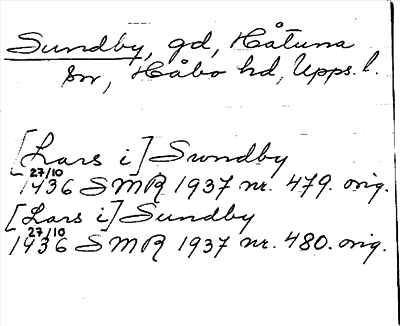 Sundby, gd, Håtuna
sn, Håbo hd, Upps. l.
[Lars i] Swndby
27/10
1436 SMR 1937 nr. 479. orig.
[Lars i] Sundby
27/10
1436 SMR 1937 nr. 480. orig.